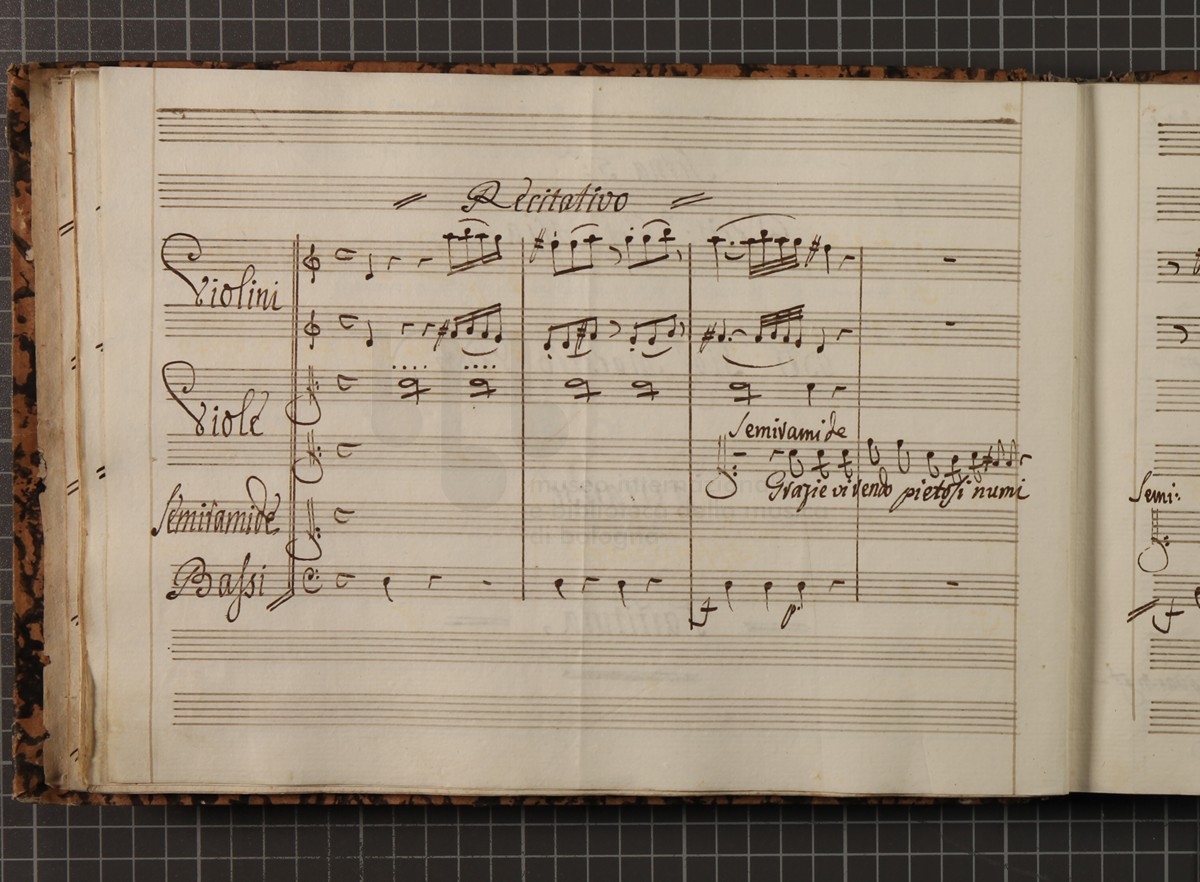 Recitativo
Violini
Viole
Semiramide
Grazie vi rendo pietosi numi
Semiramide
Bassi
f p.
Semi:
f
museo internazionale
e biblioteca della musica
di bologna